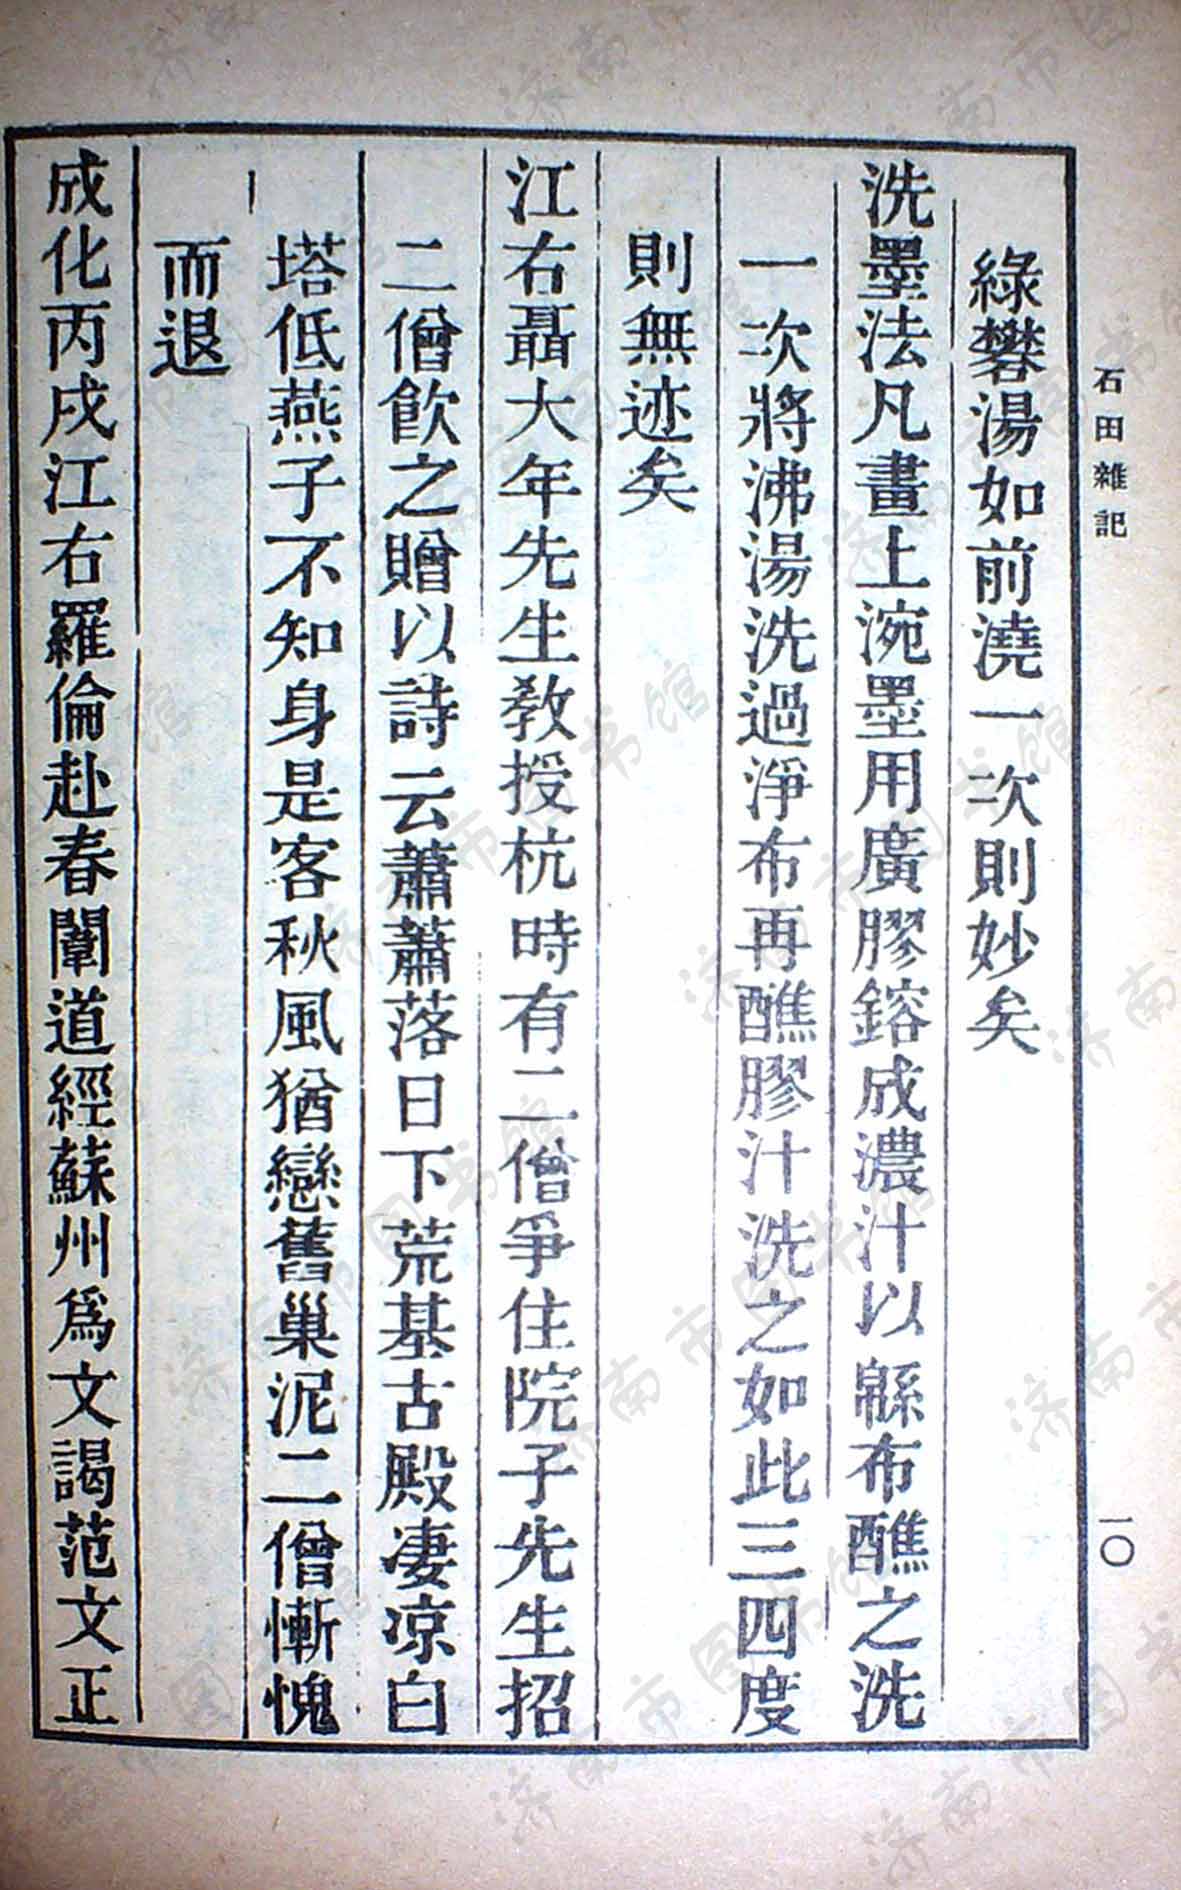 石田雜記
一〇
綠礬湯如前澆一次則妙矣
洗墨法凡畫上涴墨用廣膠鎔成濃汁以緜布醮之洗
一次將沸湯洗過淨布再醮膠汁洗之如此三四度
則無迹矣
江右聶大年先生教授杭時有二僧爭住院子先生招
二僧飲之贈以詩云蕭蕭落日下荒基古殿凄凉白
塔低燕子不知身是客秋風猶戀舊巢泥二僧慚愧
而退
成化丙戌江右羅倫赴春闈道經蘇州為文謁范文正